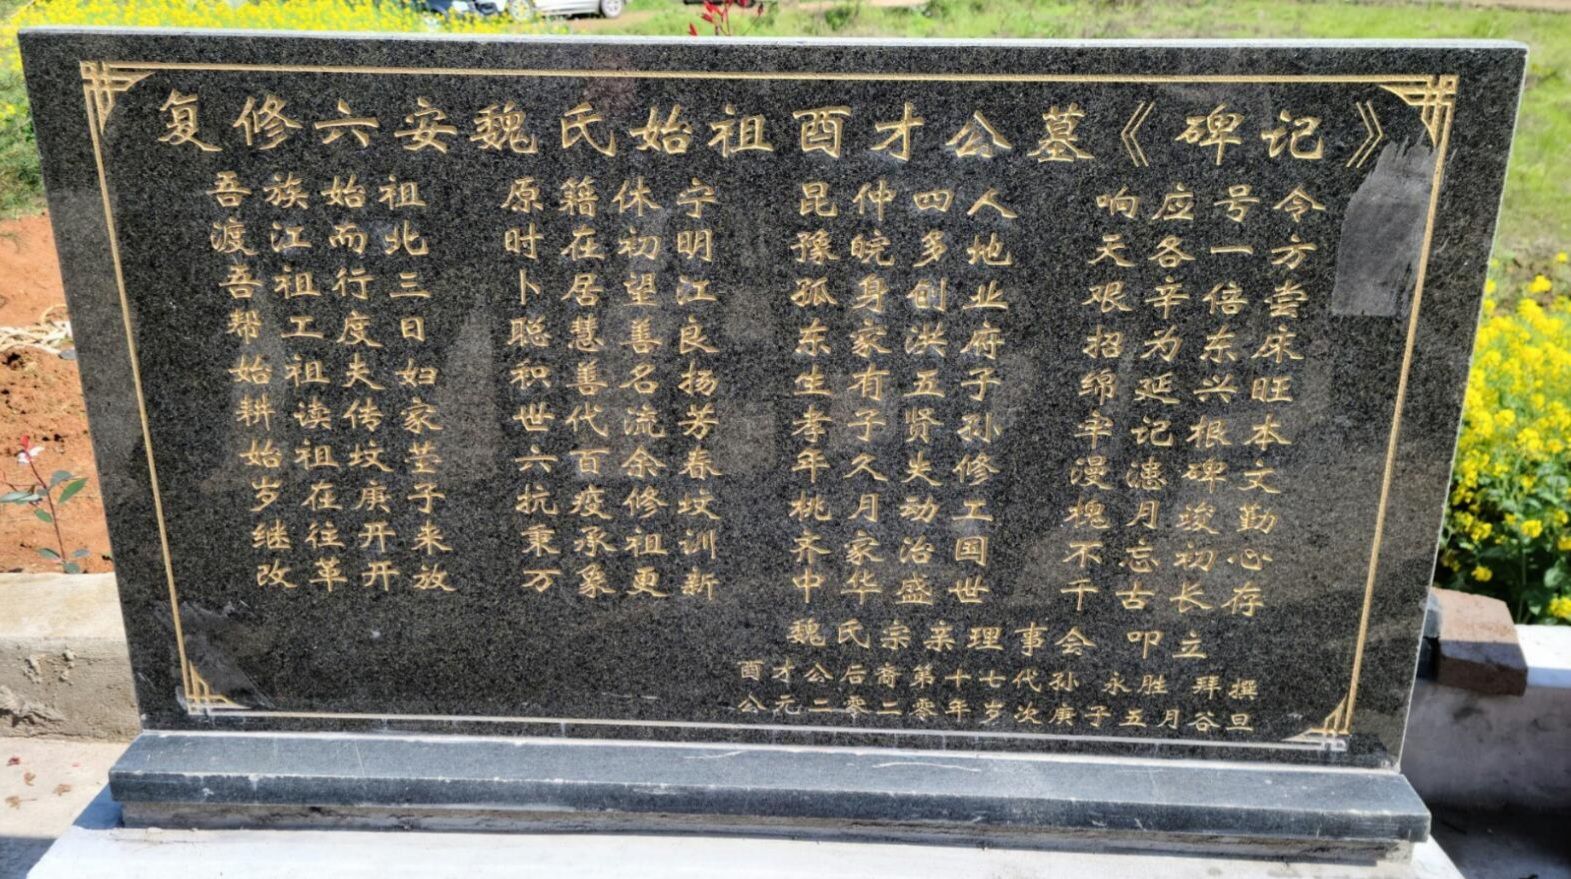 复修六安魏氏始祖酉才公墓《碑记》
吾族始祖 原籍休宁 昆仲四人 响应号令
渡江而北 时在初明 豫皖多地 天各一方
吾祖行三 卜居望江 孤身创业 艰辛倍尝
帮工度日 聪慧善良 东家洪府 招为东床
始祖夫妇 积善名扬 生有五子 绵延兴旺
耕读传家 世代流芳 孝子贤孙 牢记根本
始祖坟茔 六百余春 年久失修 漫漶碑文
岁在庚子 抗疫修坟 桃月动工 槐月竣勤
继往开来 秉承祖训 齐家治国 不忘初心
改革开放 万象更新 中华盛世 千古长存
魏氏宗亲理事会 叩立
酉才公后裔第十七代孙 永胜 拜撰
公元二零二零年岁次庚子五月谷旦